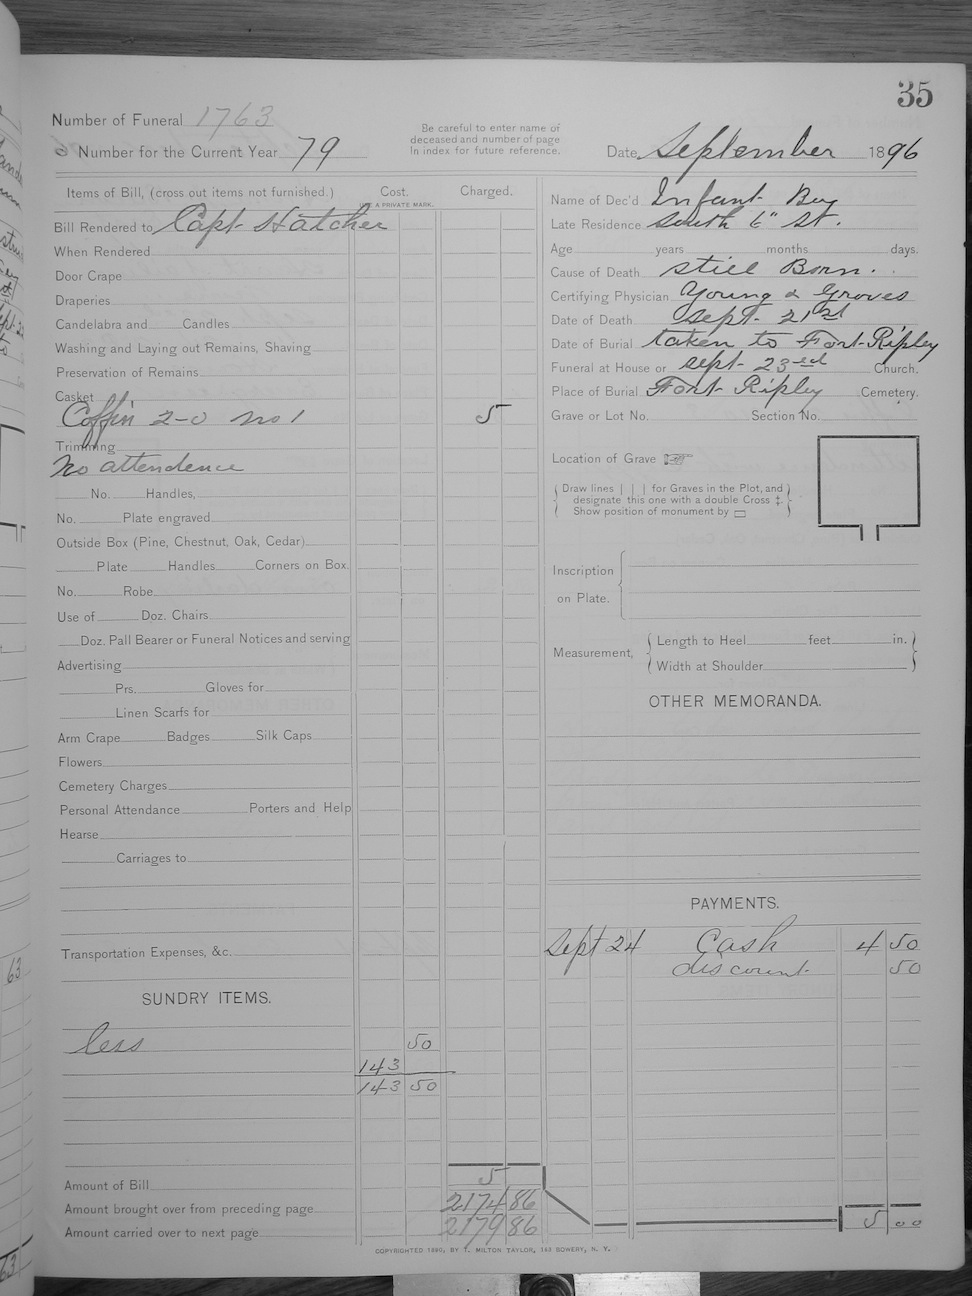 35
Number of Funeral 1763
Number for the Current Year 79
Be careful to enter name of
deceased and number of page
in index for future reference.
Date September 1896
Items of Bill, (cross out items not furnished.) Cost. Charged.
USE A PRIVATE MARK.
Bill Rendered to Capt Hatcher
When Rendered
Door Crape
Draperies
Candelabra and Candles
Washing and Laying out Remains, Shaving
Preservation of Remains
Casket
Coffin 2-0 No 1 5
Trimming
No attendence
No. Handles,
No. Plate engraved
Outside Box (Pine, Chestnut, Oak, Cedar)
Plate Handles Corners on Box.
No. Robe
Use of Doz. Chairs.
Doz. Pall Bearer or Funeral Notices and serving
Advertising
Prs. Gloves for
Linen Scarfs for
Arm Crape Badges Silk Caps
Flowers
Cemetery Charges
Personal Attendance Porters and Help
Hearse
Carriages to
Transportation Expenses, &c.
SUNDRY ITEMS.
less 50
143
143 50
Amount of Bill 5
Amount brought over from preceding page 2174 86
Amount carried over to next page 2179 86
Name of Dec'd Infant Boy
Late Residence South 6" St.
Age years months days.
Cause of Death still Born.
Certifying Physician Young & Groves
Date of Death Sept- 21st
Date of Burial taken to Fort-Ripley
Funeral at House or Sept- 23rd Church.
Place of Burial Fort Ripley Cemetery.
Grave or Lot No. Section No.
Location of Grave
Draw lines | | | for Graves in the Plot, and
designate this one with a double Cross ‡.
Show position of monument by ▭
Inscription
on Plate.
Measurement,
Length to Heel feet in.
Width at Shoulder
OTHER MEMORANDA.
PAYMENTS.
Sept 24 Cash 4 50
discount 50
5 00
COPYRIGHTED 1890, BY T. MILTON TAYLOR, 163 BOWERY, N. Y.